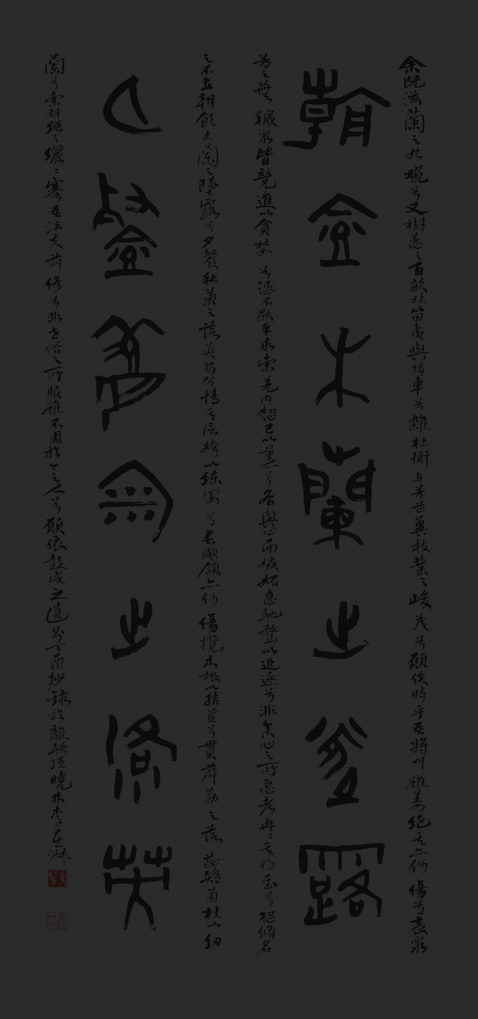 余既滋蘭之九畹兮又樹蕙之百畝畦留夷與揭車兮雜杜衡與芳芷冀枝葉之峻茂兮願俟時乎吾將刈雖萎絕其亦何傷兮哀眾
朝飲木蘭之墜露
芳之蕪穢眾皆競進以貪婪兮憑不猒乎求索羌內恕己以量人兮各興心而嫉妬忽馳騖以追逐兮非余心之所急老冉冉其將至兮恐脩名
之不立朝飲木蘭之墜露兮夕餐秋菊之落英苟余情其信姱以練要兮長顑頷亦何傷攬木根以結茝兮貫薜荔之落蕊矯菌桂以紉
夕餐秋菊之落英
蘭兮索胡繩之纚纚謇吾法夫前修兮非世俗之所服雖不周於今之人兮願依彭咸之遺則丁酉抄錄於離騷經曉林李